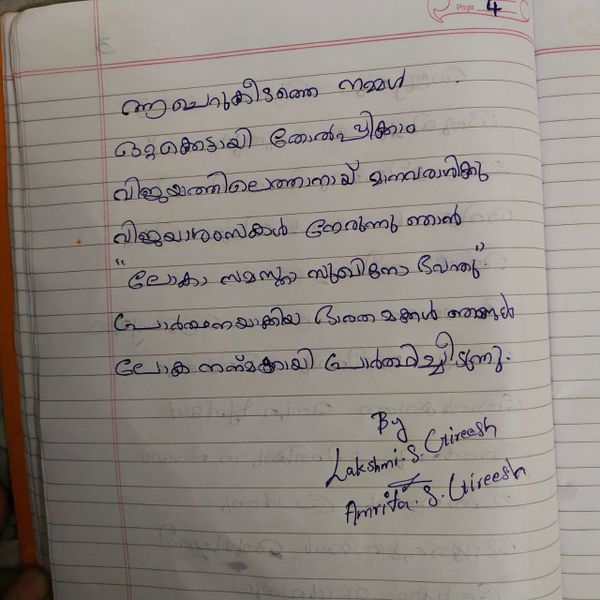 Page 4
ഈ ചെറുകീടത്തെ നമ്മൾ
ഒറ്റക്കെട്ടായി തോൽപ്പിക്കാം
വിജയത്തിലെത്താനായ് മാനവരാശിക്കു
വിജയാശംസകൾ നേരുന്നു ഞാൻ
"ലോകാ സമസ്താ സുഖിനോ ഭവന്തു"
പ്രാർത്ഥനയാക്കിയ ഭാരത മക്കൾ ഞങ്ങൾ
ലോക നന്മക്കായി പ്രാർത്ഥിച്ചീടുന്നു.
By
Lakshmi.S.Gireesh
Amrita.S.Gireesh